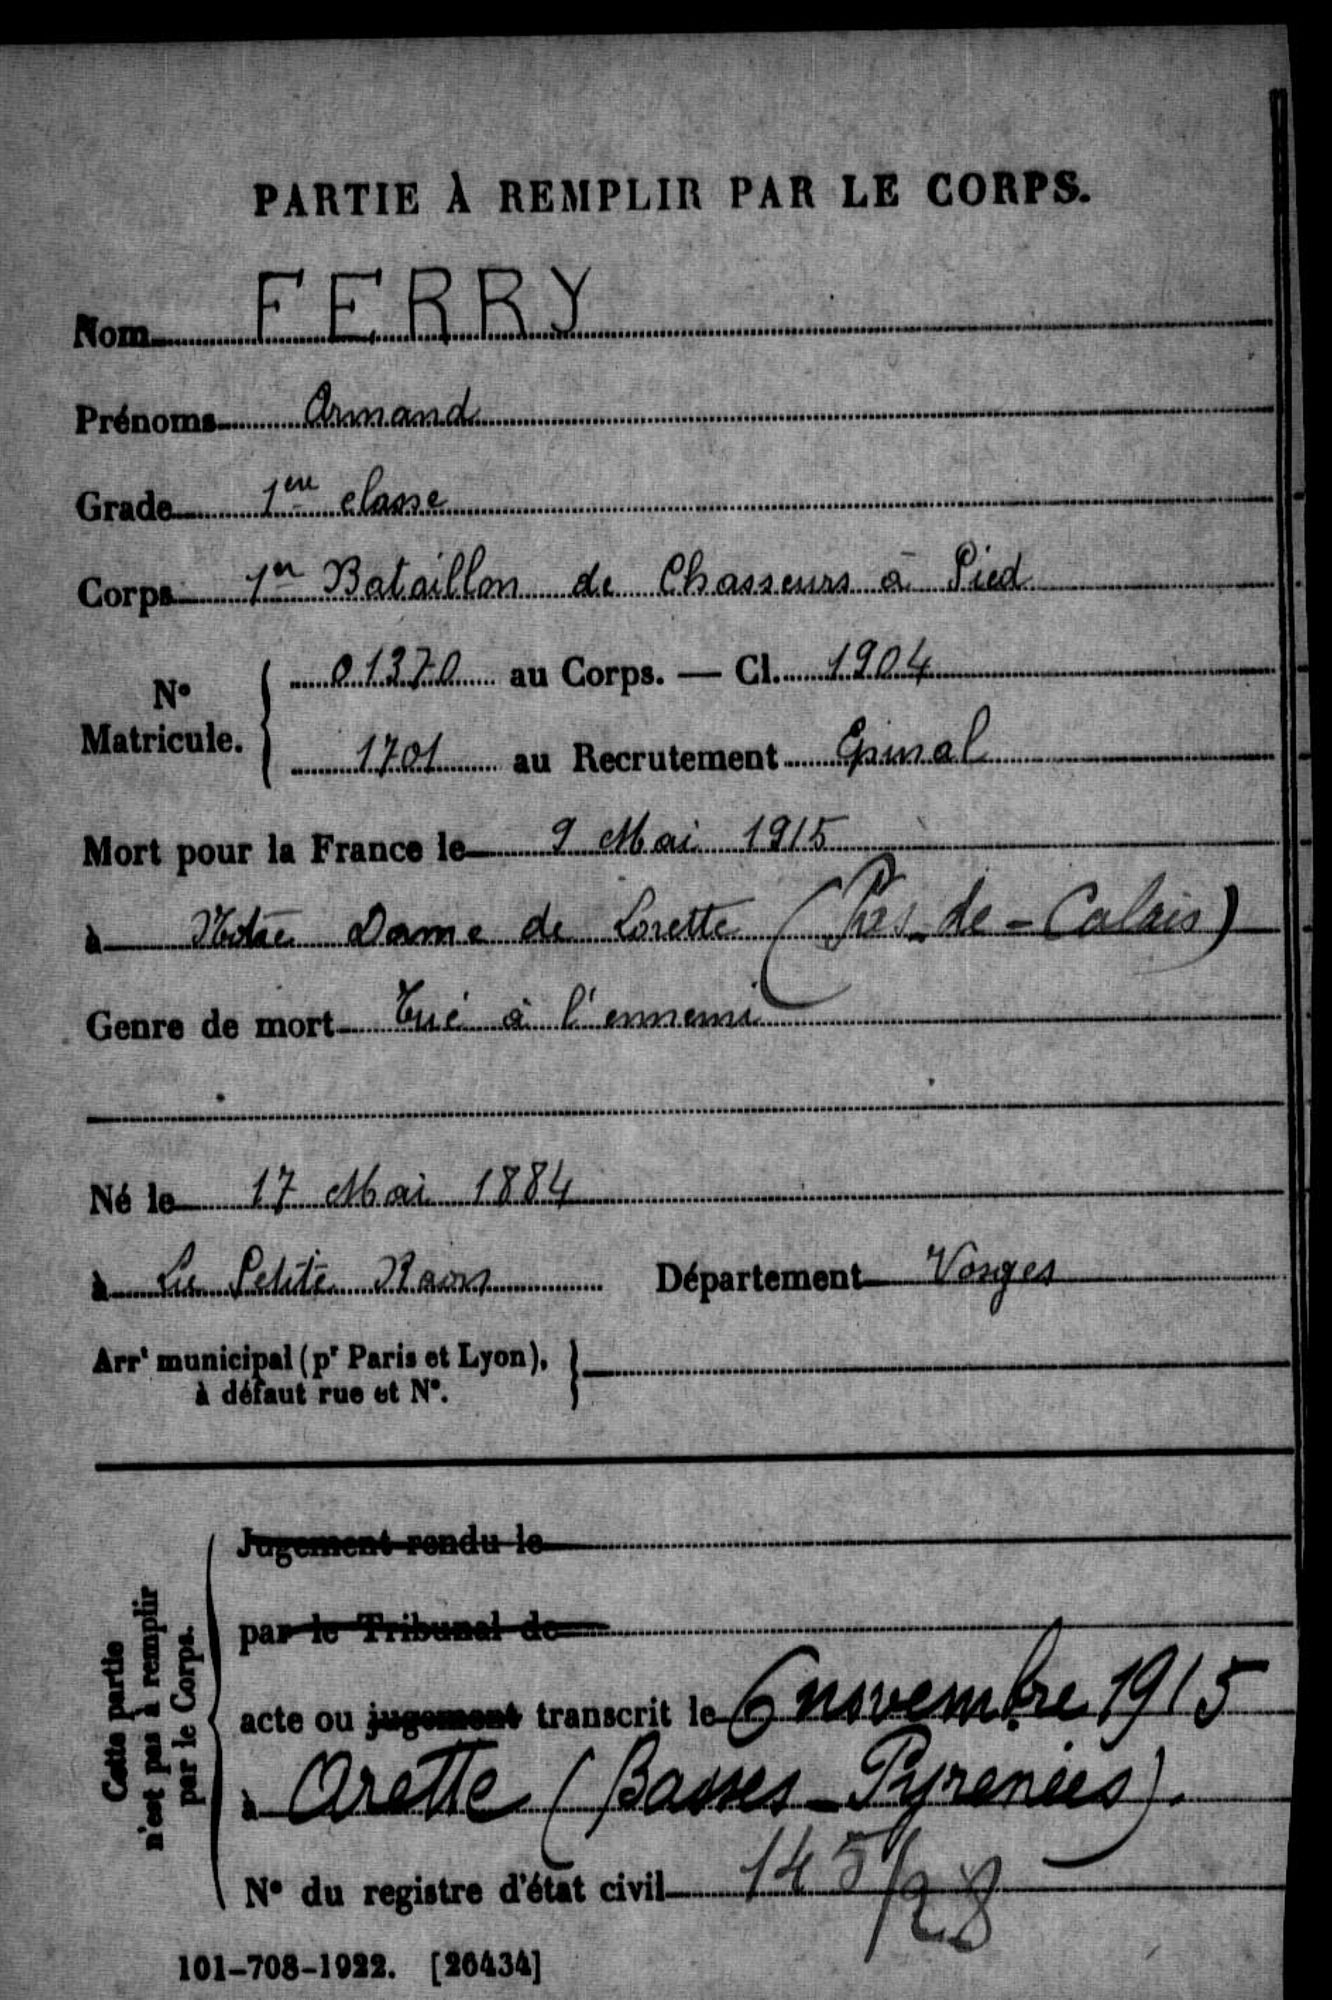 PARTIE À REMPLIR PAR LE CORPS.
Nom FERRY
Prénoms Armand
Grade 1ere classe
Corps 1er Bataillon de Chasseurs à Pied
N° Matricule. { 01370 au Corps. — Cl. 1904
1701 au Recrutement Epinal
Mort pour la France le 9 Mai 1915
à Notre Dame de Lorette (Pas-de-Calais)
Genre de mort Tué à l'ennemi
Né le 17 Mai 1884
à La Petite Raon Département Vosges
Arrt municipal (pr Paris et Lyon), }
à défaut rue et N°.
Cette partie
n'est pas à remplir
par le Corps.
Jugement rendu le
par le Tribunal de
acte ou jugement transcrit le 6 novembre 1915
à Arette (Basses-Pyrenées).
N° du registre d'état civil 145/28
101-708-1922. [26434]